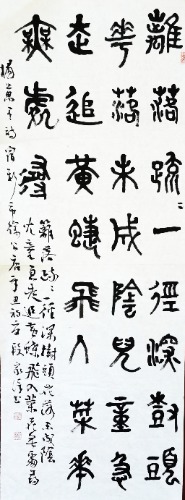 離落疏〻一徑深尌頭
華落未成陰兒童急
走追黃蜨飛入菜華
無處尋
籬落疏〻一徑深樹頭花落未成陰
兒童急走追黃蝶飛入菜花無處尋
楊萬里詩宿新市徐公店辛丑初